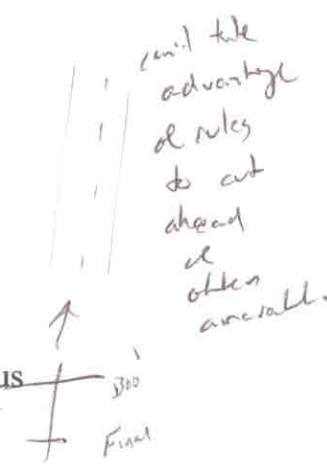 can't take
advantage
of rules
to cut
ahead
of
other
aircraft.
IS
800'
Final